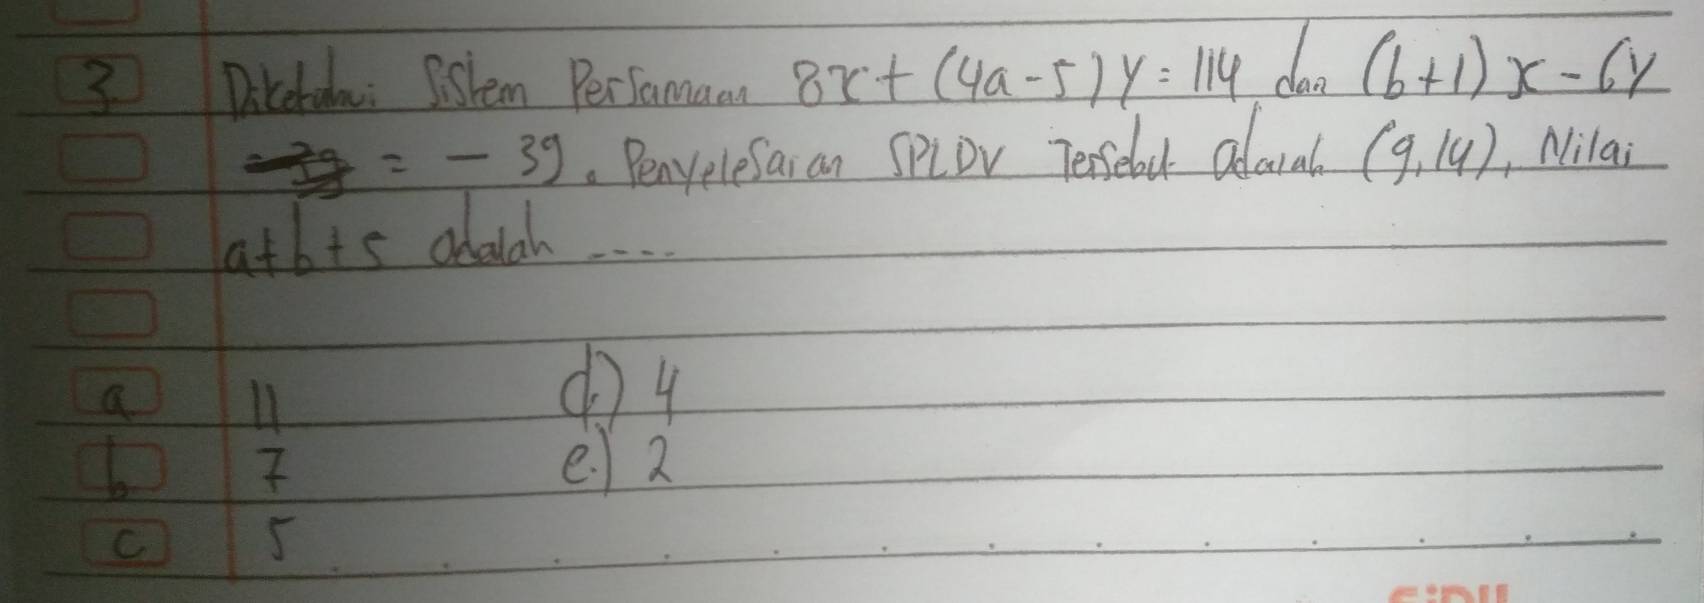 3 Diketahui Sistem Persamaan 8x + (4a - 5) y = 114 dan (b+1) x - 6y
= - 39. Penyelesaian SPLDV Tersebut adalah (9,14), Nilai
a+b+5 adalah ....
a 11 d.) 4
b 7 e.) 2
c 5
SiDU